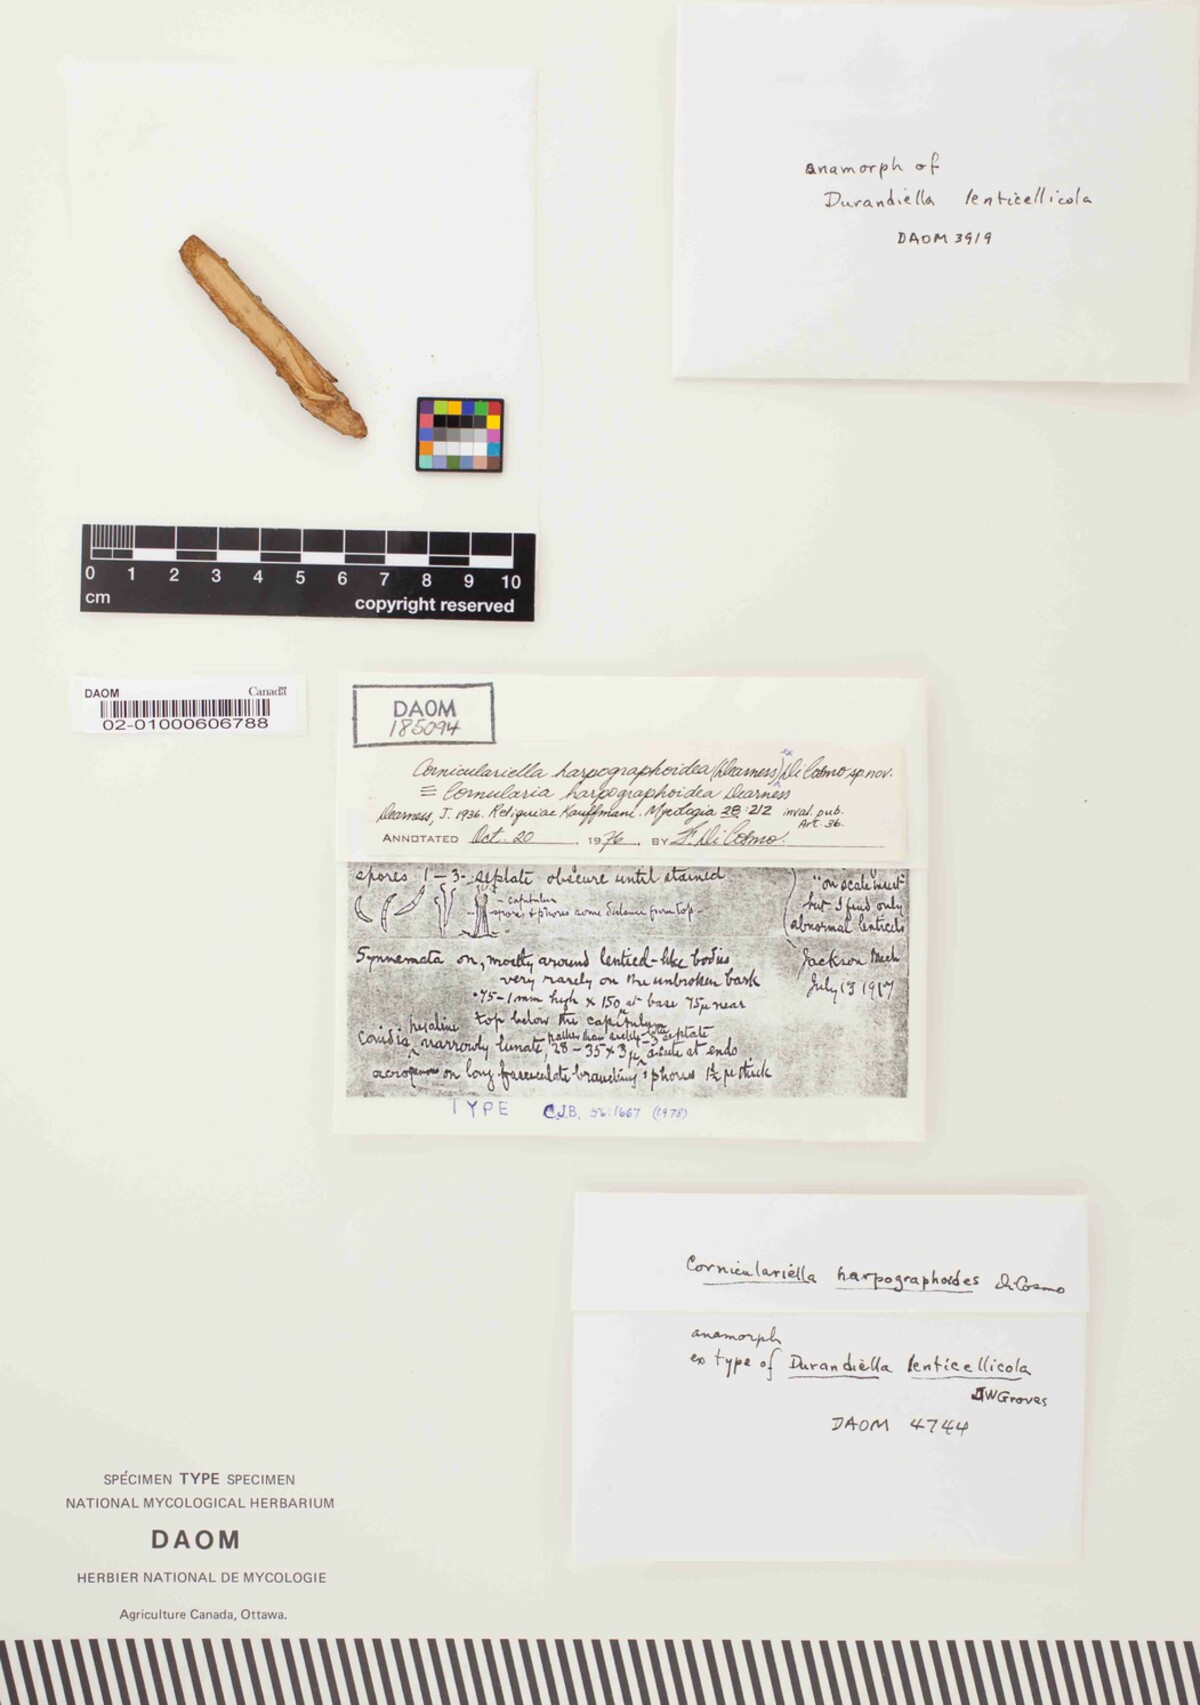 anamorph of
Durandiella lenticellicola
DAOM 3919
0 1 2 3 4 5 6 7 8 9 10
cm
copyright reserved
DAOM
Canada
02-01000606788
DAOM
185094
Corniculariella harpographoidea (Dearness) ex Di Cosmo sp. nov.
≡ Cornularia harpographoidea Dearness
Dearness, J. 1936. Reliquiae Kauffmani. Mycologia 28:212 inval. pub.
Art. 36.
ANNOTATED Oct. 20, 1976, BY F. Di Cosmo.
spores 1-3-septate obscure until stained
capitulum
spores & phores some distance from top
"on scale insect"
but I find only
abnormal lenticels
Jackson Mich
July 13 1917
Synnemata on, mostly around lenticel-like bodies
very rarely on the unbroken bark
.75-1 mm high x 150 at base 75µ near
top below the capitulum
Conidia hyaline narrowly lunate, 28-35 x 3µ acute at ends
on long fasciculate branching phores 1½ µ thick
TYPE C.J.B. 56:1667 (1978)
Corniculariella harpographoides DiCosmo
anamorph
ex type of Durandiella lenticellicola
JWGroves
DAOM 4744
SPÉCIMEN TYPE SPECIMEN
NATIONAL MYCOLOGICAL HERBARIUM
DAOM
HERBIER NATIONAL DE MYCOLOGIE
Agriculture Canada, Ottawa.